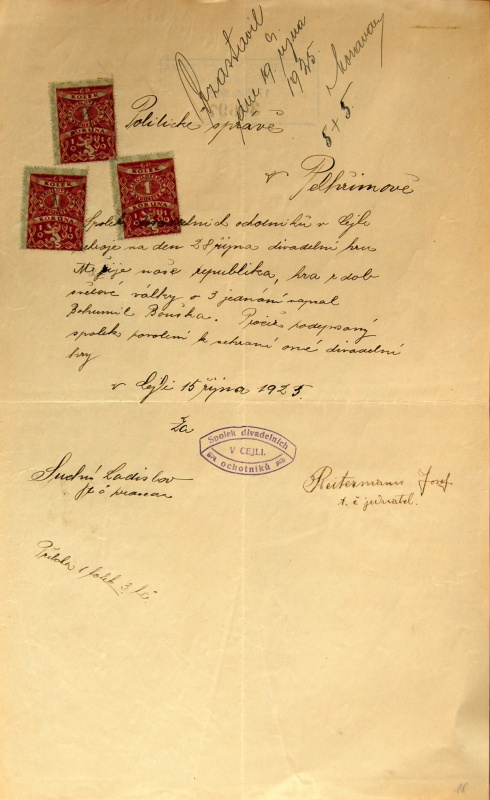 dne 19. října
1925.
5 + 5.
Č.S.
KOLEK
1
KORUNA
Č.S.
KOLEK
1
KORUNA
Č.S.
KOLEK
1
KORUNA
Politické správě
v Pelhřimově
Spolek divadelních ochotníků v Cejli
na den 28 října divadelní hru
Ať žije naše republika, hra z dob
světové války o 3 jednání napsal
Bohumil Bouška. Pročež podepsaný
spolek povolení k sehrání oné divadelní
hry
v Cejli 15 října 1925.
Za
Spolek divadelních
V CEJLI.
ochotníků
Suchý Ladislav
Reitermann Josef
t. č. jednatel.
Příloha 1 kolek 3 Kč.
18